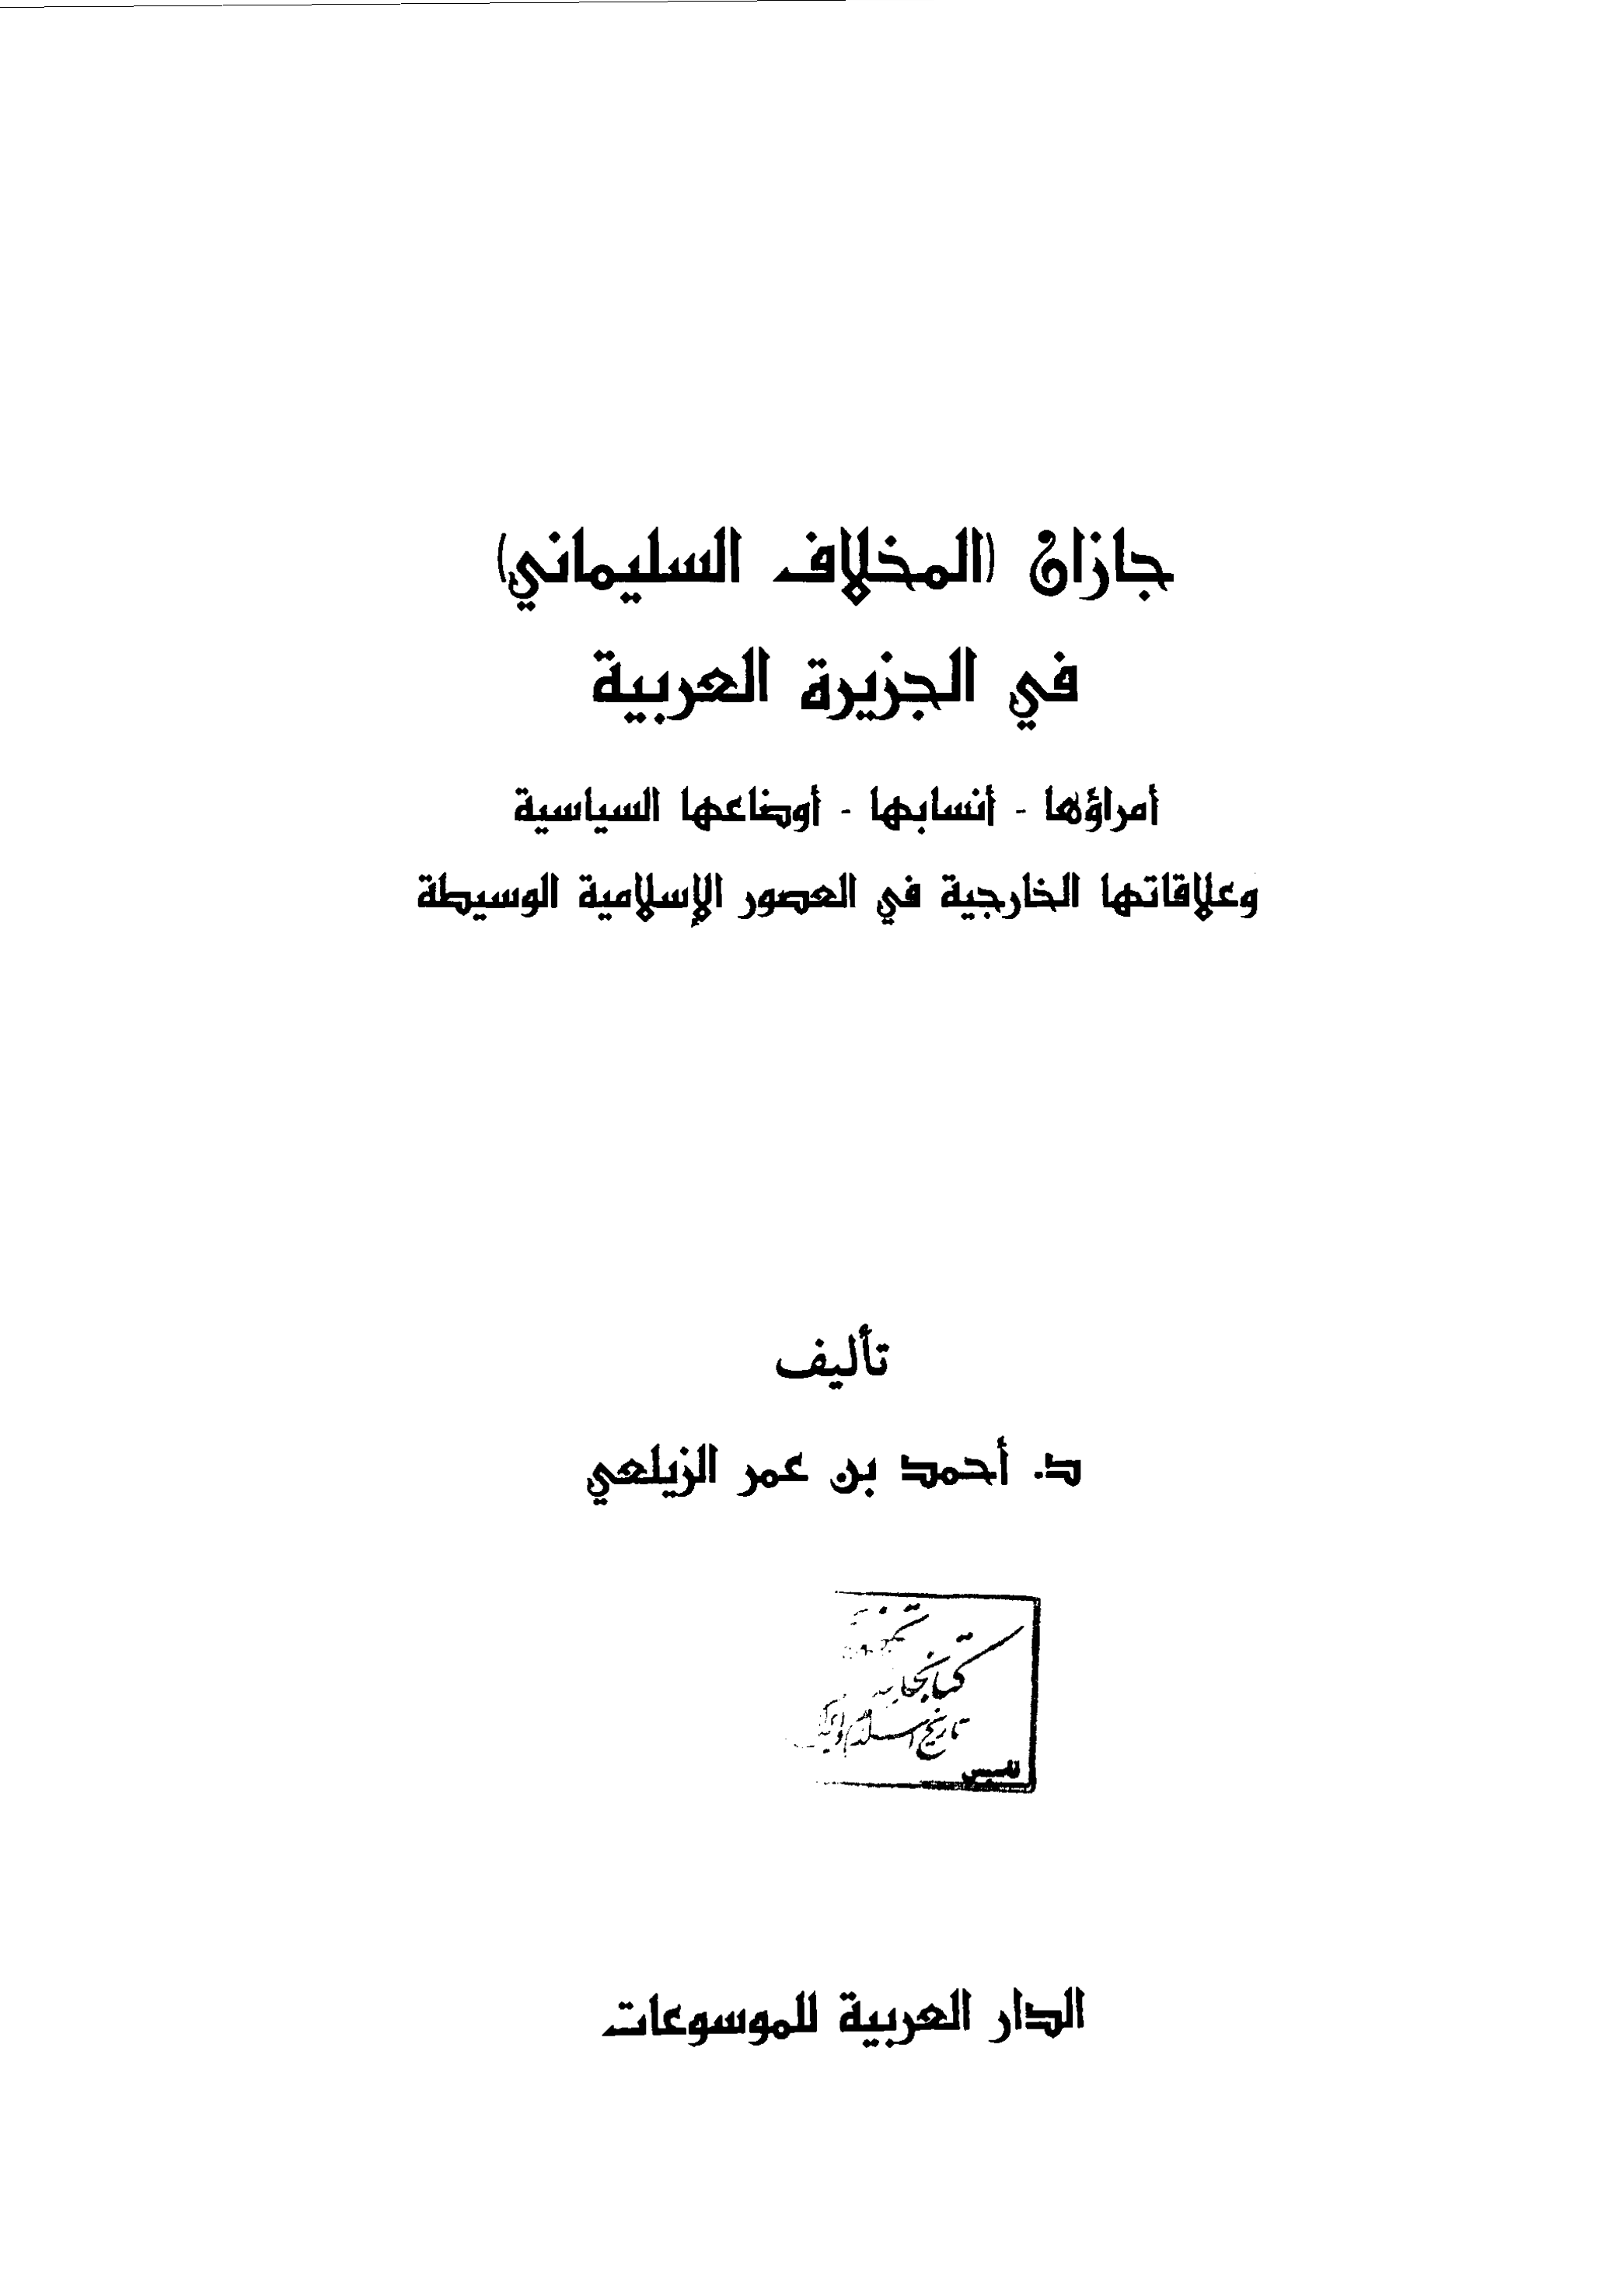 جازان (المخلاف السليماني)
في الجزيرة العربية
أمراؤها - أنسابها - أوضاعها السياسية
وعلاقاتها الخارجية في العصور الإسلامية الوسيطة
تأليف
د. أحمد بن عمر الزيلعي
كتابخانه
تاريخ اسلام و ايران
الدار العربية للموسوعات